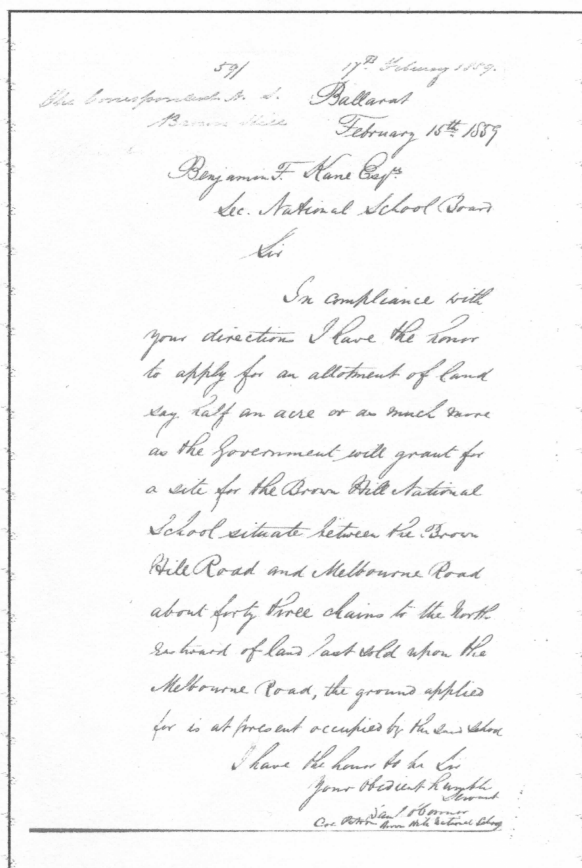 59/ 17th February 1859.
The Correspondent N. S.
Brown Hill
Ballarat
February 15th 1859
Benjamin F. Kane Esqre
Sec. National School Board
Sir
In compliance with
your direction I have the honor
to apply for an allotment of land
say half an acre or as much more
as the Government will grant for
a site for the Brown Hill National
School situate between the Brown
Hill Road and Melbourne Road
about forty three chains to the North
Eastward of land last sold upon the
Melbourne Road, the ground applied
for is at present occupied by the said School
I have the honor to be Sir
Your obedient humble
Servant
O'Connor
Brown Hill National School